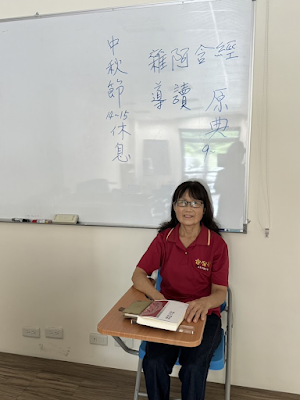 雜阿含經
導讀
原典
中秋節
14-15休息